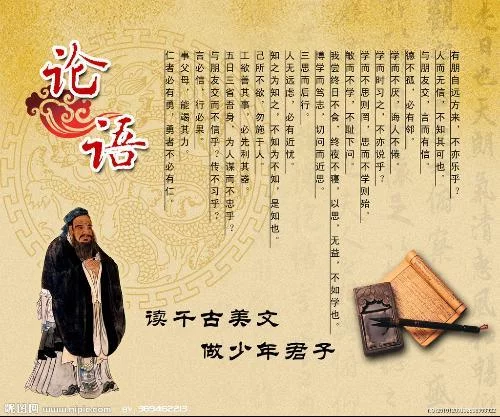 论语
有朋自远方来，不亦乐乎？
人而无信，不知其可也。
与朋友交，言而有信
德不孤，必有邻。
学而不厌，诲人不倦。
学而时习之，不亦说乎？
学而不思则罔，思而不学则殆。
敏而不学，不耻下问。
我尝终日不食，终夜不寝，以思，无益，不如学也。
博学而笃志，切问而近思。
三思而后行。
人无远虑，必有近忧。
知之为知之，不知为不知，是知也。
己所不欲，勿施于人。
工欲善其事，必先利其器。
五日三省吾身，为人谋而不忠乎？
与朋友交而不信乎？传不习乎？
言必信，行必果。
事父母，能竭其力。
仁者必有勇，勇者不必有仁。
读千古美文
做少年君子
昵图网 www.nipic.com BY: 969462213